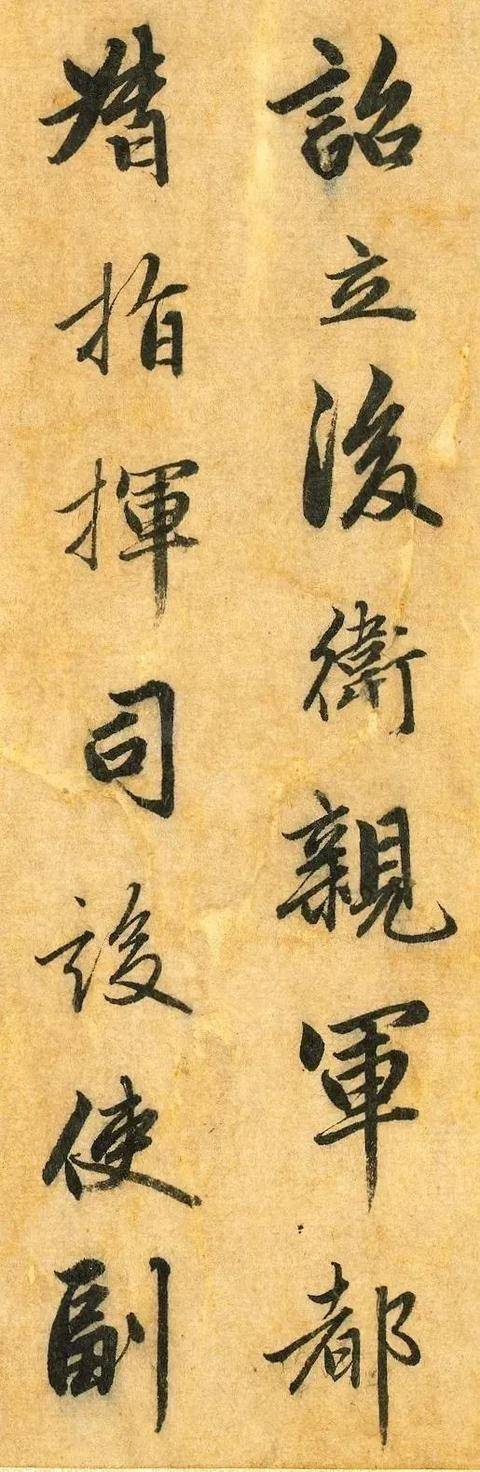 詔立後衛親軍都
㬱指揮司設使副